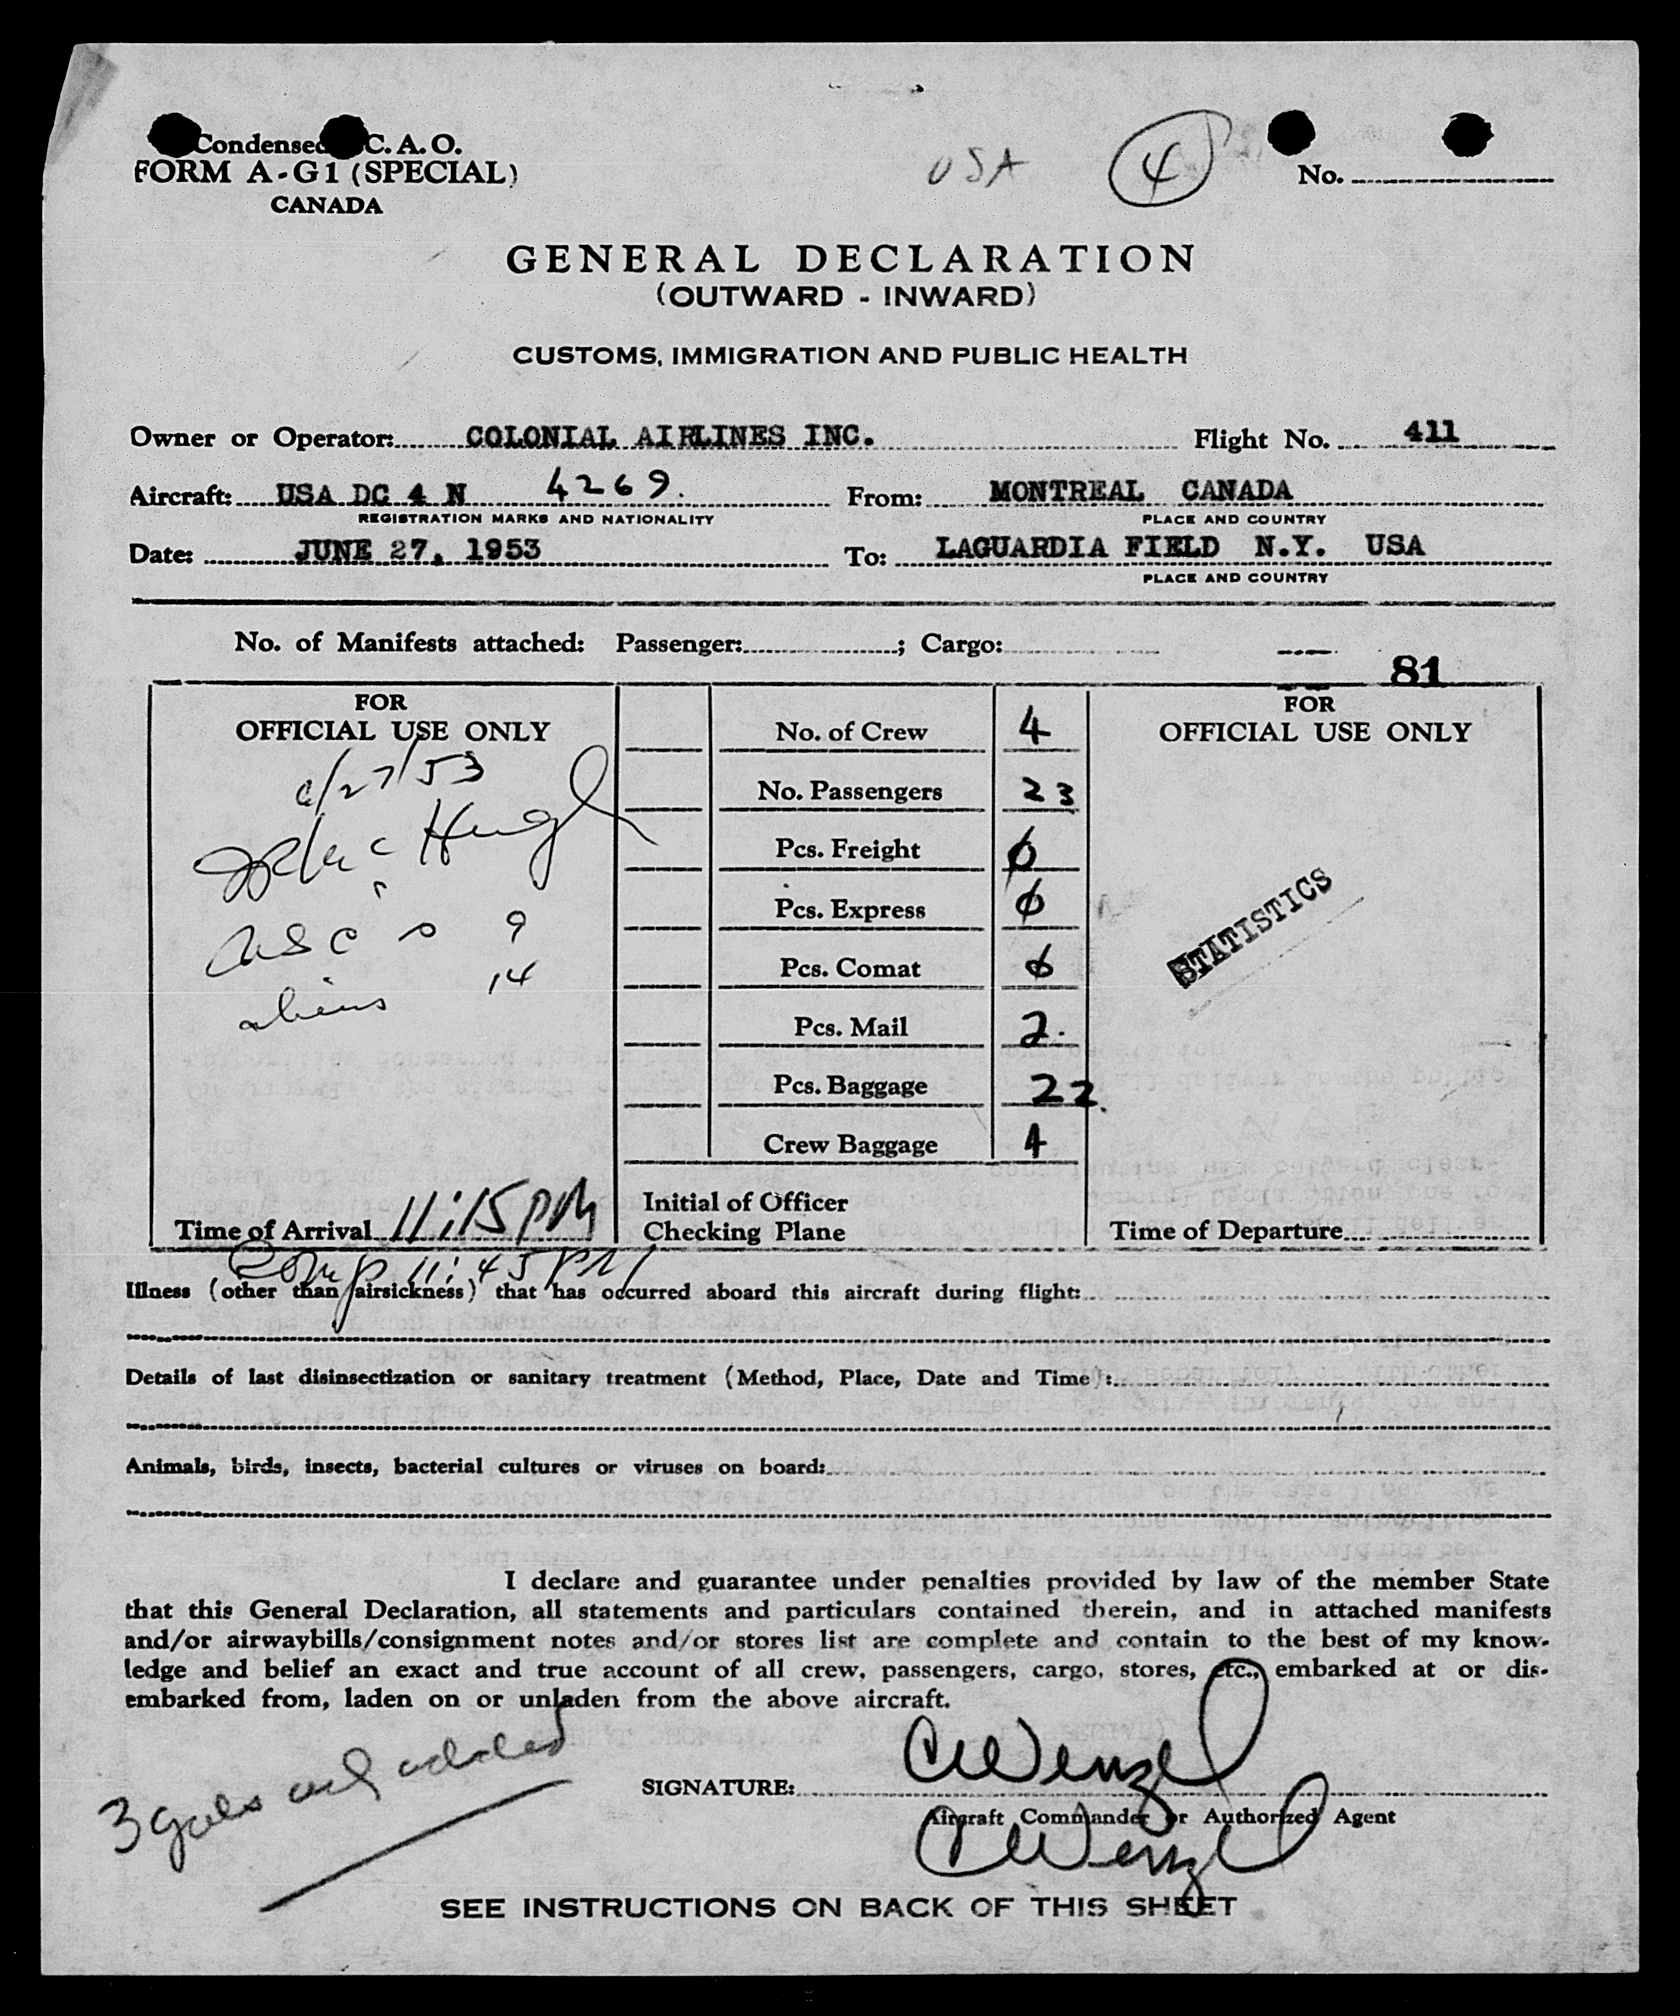 Condensed C. A. O.
FORM A-G1 (SPECIAL)
CANADA
USA
4
No.
GENERAL DECLARATION
(OUTWARD - INWARD)
CUSTOMS, IMMIGRATION AND PUBLIC HEALTH
Owner or Operator: COLONIAL AIRLINES INC. Flight No. 411
Aircraft: USA DC 4 N 4269. From: MONTREAL CANADA
REGISTRATION MARKS AND NATIONALITY PLACE AND COUNTRY
Date: JUNE 27, 1953 To: LAGUARDIA FIELD N.Y. USA
PLACE AND COUNTRY
No. of Manifests attached: Passenger: ; Cargo:
81
FOR
OFFICIAL USE ONLY
6/27/53
McHugh
USC's 9
aliens 14
Time of Arrival 11:15 PM
Comp 11:45 PM
No. of Crew 4
No. Passengers 23
Pcs. Freight 0
Pcs. Express 0
Pcs. Comat 0
Pcs. Mail 2.
Pcs. Baggage 22.
Crew Baggage 4
Initial of Officer
Checking Plane
FOR
OFFICIAL USE ONLY
STATISTICS
Time of Departure
Illness (other than airsickness) that has occurred aboard this aircraft during flight:
Details of last disinsectization or sanitary treatment (Method, Place, Date and Time):
Animals, birds, insects, bacterial cultures or viruses on board:
I declare and guarantee under penalties provided by law of the member State
that this General Declaration, all statements and particulars contained therein, and in attached manifests
and/or airwaybills/consignment notes and/or stores list are complete and contain to the best of my know-
ledge and belief an exact and true account of all crew, passengers, cargo, stores, etc., embarked at or dis-
embarked from, laden on or unladen from the above aircraft.
3 gals added
SIGNATURE: C Wenzel
Aircraft Commander or Authorized Agent
C Wenzel
SEE INSTRUCTIONS ON BACK OF THIS SHEET